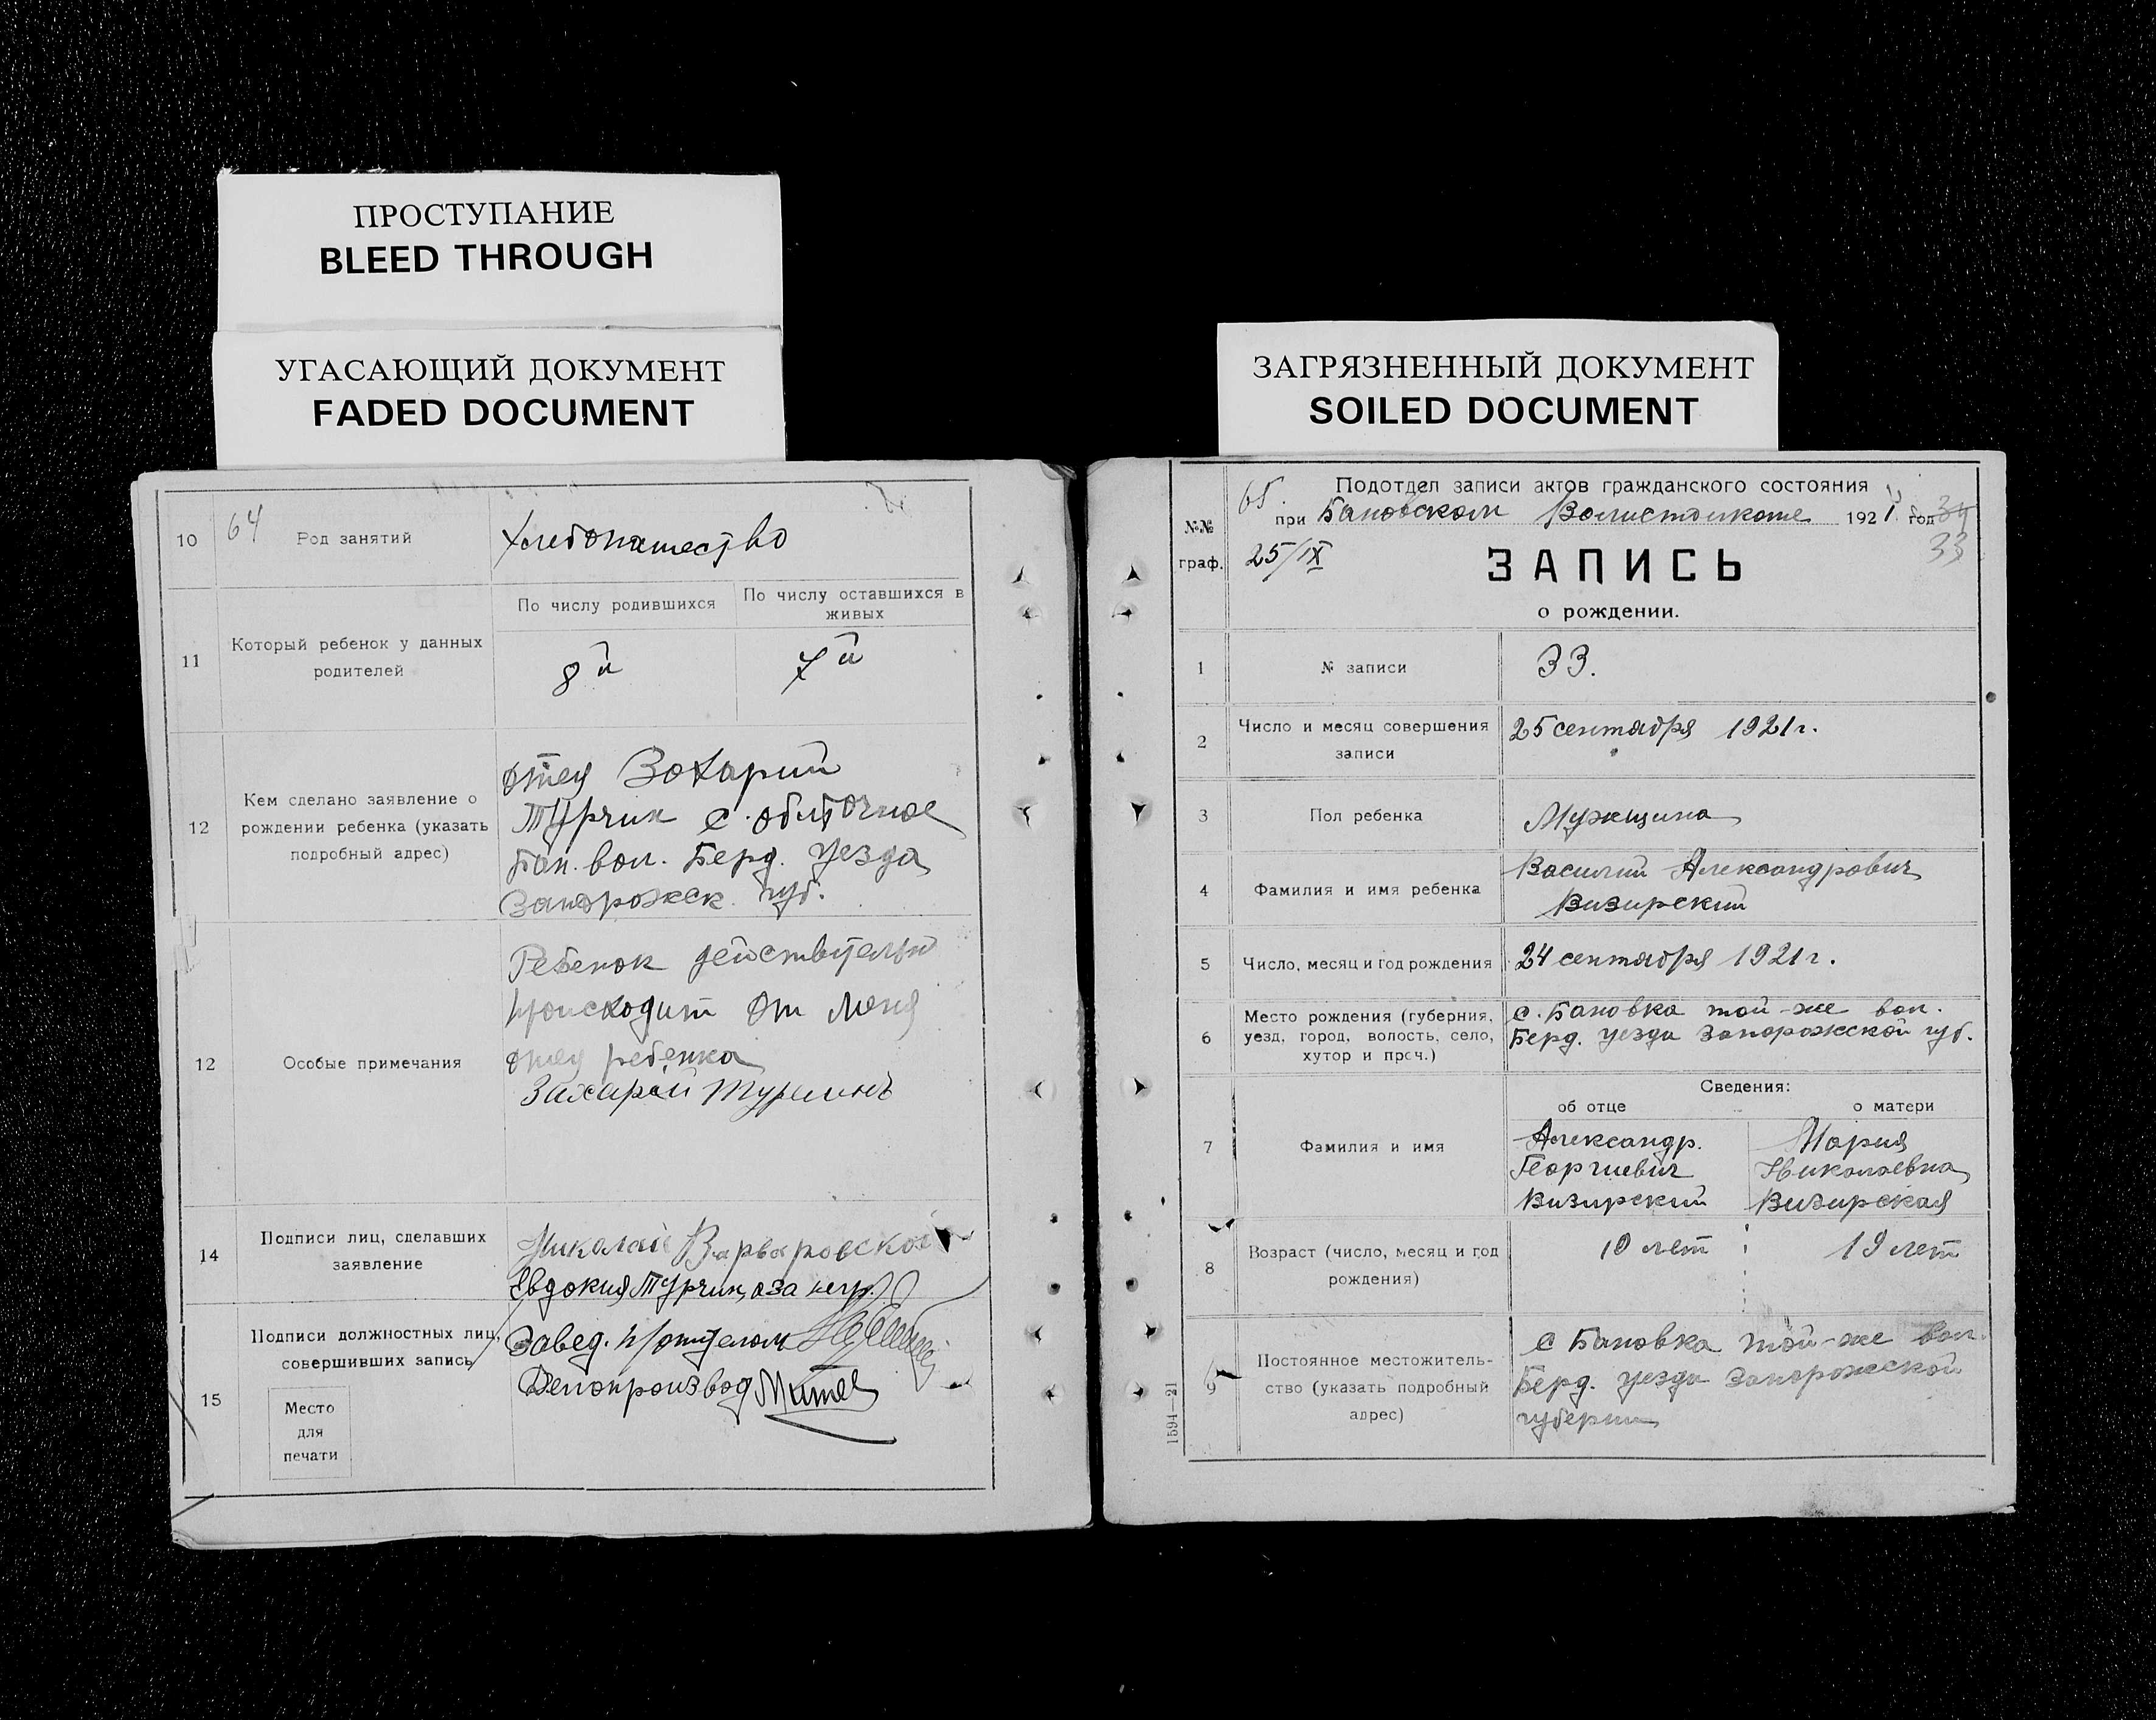 ПРОСТУПАНИЕ
BLEED THROUGH
УГАСАЮЩИЙ ДОКУМЕНТ
FADED DOCUMENT
10
64
Род занятий
Хлебопашество
11
Который ребенок у данных
родителей
По числу родившихся
По числу оставшихся в
живых
8й
7й
12
Кем сделано заявление о
рождении ребенка (указать
подробный адрес)
отец Захарий
Турчин с. Обиточное
Бан. вол. Берд. уезда
Запорожск. губ.
12
Особые примечания
Ребенок действительно
происходит от меня
отец ребенка
Захарий
14
Подписи лиц, сделавших
заявление
Николай Варваровской
Евдокия Турчин, а за негр.
15
Подписи должностных лиц,
совершивших запись
Место
для
печати
Завед. п/отделом
Делопроизвод
ЗАГРЯЗНЕННЫЙ ДОКУМЕНТ
SOILED DOCUMENT
№№
граф.
65.
Подотдел записи актов гражданского состояния
при Бановском Волисполкоме 1921 год 34
33
25/IX
ЗАПИСЬ
о рождении.
1
№ записи
33.
2
Число и месяц совершения
записи
25 сентября 1921 г.
3
Пол ребенка
Мужщина
4
Фамилия и имя ребенка
Василий Александрович
Визирский
5
Число, месяц и год рождения
24 сентября 1921 г.
6
Место рождения (губерния,
уезд, город, волость, село,
хутор и проч.)
с. Бановка той-же вол.
Берд. уезда Запорожской губ.
7
Фамилия и имя
Сведения:
об отце
о матери
Александр.
Георгиевич
Визирский
Мария
Николаевна
Визирская
8
Возраст (число, месяц и год
рождения)
19 лет
19 лет
9
Постоянное местожитель-
ство (указать подробный
адрес)
с Бановка той-же вол.
Берд. уезда Запорожской
губернии
1594—21